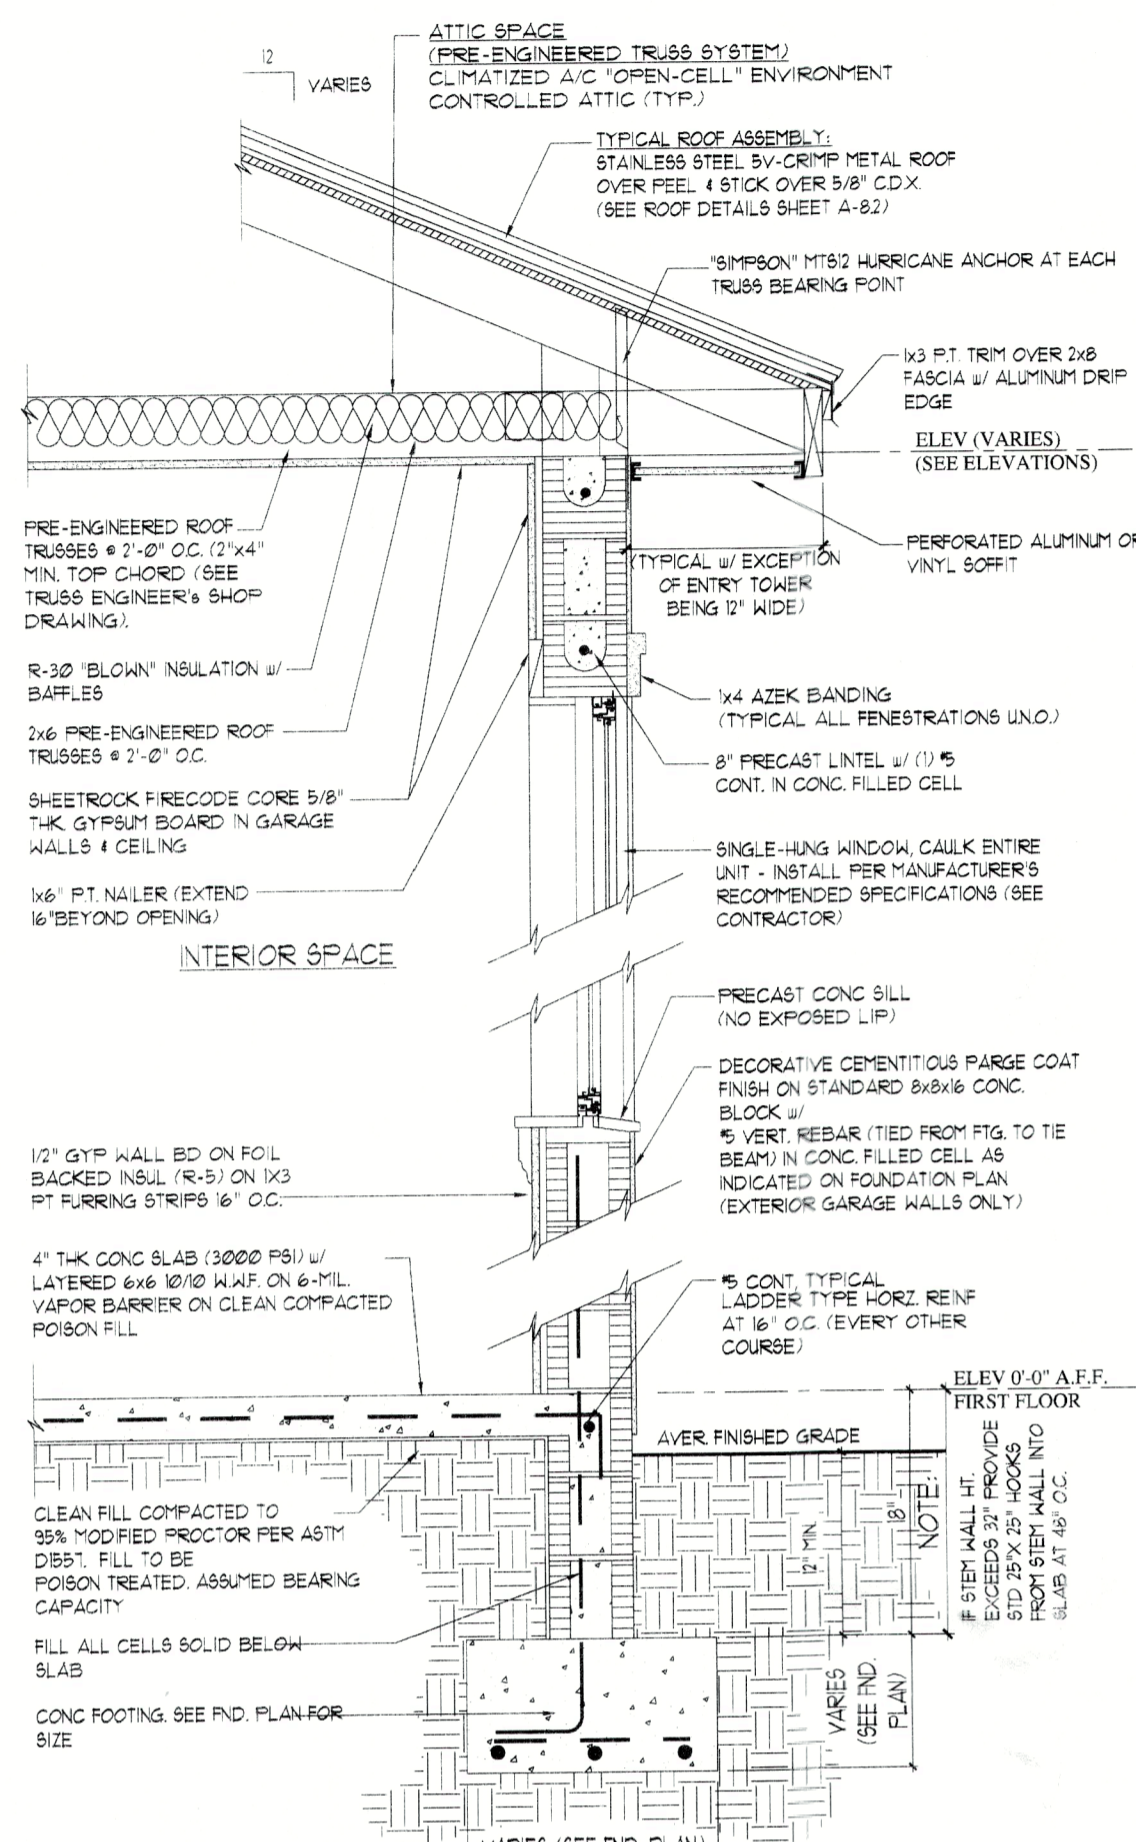 ATTIC SPACE
(PRE-ENGINEERED TRUSS SYSTEM)
CLIMATIZED A/C "OPEN-CELL" ENVIRONMENT
CONTROLLED ATTIC (TYP.)
12
VARIES
TYPICAL ROOF ASSEMBLY:
STAINLESS STEEL 5V-CRIMP METAL ROOF
OVER PEEL & STICK OVER 5/8" C.D.X.
(SEE ROOF DETAILS SHEET A-8.2)
"SIMPSON" MTS12 HURRICANE ANCHOR AT EACH
TRUSS BEARING POINT
1x3 P.T. TRIM OVER 2x8
FASCIA w/ ALUMINUM DRIP
EDGE
ELEV (VARIES)
(SEE ELEVATIONS)
PERFORATED ALUMINUM OR
VINYL SOFFIT
(TYPICAL w/ EXCEPTION
OF ENTRY TOWER
BEING 12" WIDE)
PRE-ENGINEERED ROOF
TRUSSES @ 2'-0" O.C. (2"x4"
MIN. TOP CHORD (SEE
TRUSS ENGINEER's SHOP
DRAWING).
R-30 "BLOWN" INSULATION w/
BAFFLES
2x6 PRE-ENGINEERED ROOF
TRUSSES @ 2'-0" O.C.
SHEETROCK FIRECODE CORE 5/8"
THK. GYPSUM BOARD IN GARAGE
WALLS & CEILING
1x6" P.T. NAILER (EXTEND
16"BEYOND OPENING)
INTERIOR SPACE
1x4 AZEK BANDING
(TYPICAL ALL FENESTRATIONS U.N.O.)
8" PRECAST LINTEL w/ (1) #5
CONT. IN CONC. FILLED CELL
SINGLE-HUNG WINDOW, CAULK ENTIRE
UNIT - INSTALL PER MANUFACTURER'S
RECOMMENDED SPECIFICATIONS (SEE
CONTRACTOR)
PRECAST CONC SILL
(NO EXPOSED LIP)
DECORATIVE CEMENTITIOUS PARGE COAT
FINISH ON STANDARD 8x8x16 CONC.
BLOCK w/
#5 VERT. REBAR (TIED FROM FTG. TO TIE
BEAM) IN CONC. FILLED CELL AS
INDICATED ON FOUNDATION PLAN
(EXTERIOR GARAGE WALLS ONLY)
1/2" GYP WALL BD ON FOIL
BACKED INSUL (R-5) ON 1X3
PT FURRING STRIPS 16" O.C.
4" THK CONC SLAB (3000 PSI) w/
LAYERED 6x6 10/10 W.W.F. ON 6-MIL.
VAPOR BARRIER ON CLEAN COMPACTED
POISON FILL
#5 CONT, TYPICAL
LADDER TYPE HORZ. REINF
AT 16" O.C. (EVERY OTHER
COURSE)
ELEV 0'-0" A.F.F.
FIRST FLOOR
AVER. FINISHED GRADE
CLEAN FILL COMPACTED TO
95% MODIFIED PROCTOR PER ASTM
D1557. FILL TO BE
POISON TREATED. ASSUMED BEARING
CAPACITY
FILL ALL CELLS SOLID BELOW
SLAB
CONC FOOTING. SEE FND. PLAN FOR
SIZE
12" MIN.
18"
NOTE:
IF STEM WALL HT.
EXCEEDS 32" PROVIDE
STD 25"X 25" HOOKS
FROM STEM WALL INTO
SLAB AT 48" O.C.
VARIES
(SEE FND.
PLAN)
VARIES (SEE FND. PLAN)